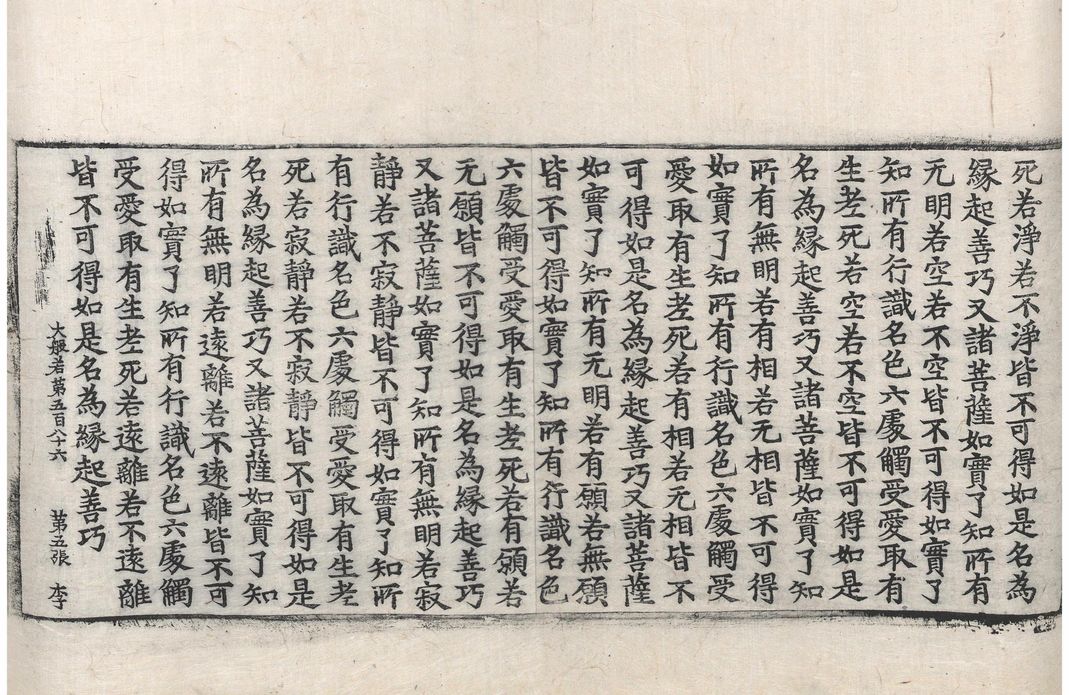 死若淨若不淨皆不可得如是名為
緣起善巧又諸菩薩如實了知所有
无明若空若不空皆不可得如實了
知所有行識名色六處觸受愛取有
生老死若空若不空皆不可得如是
名為緣起善巧又諸菩薩如實了知
所有無明若有相若无相皆不可得
如實了知所有行識名色六處觸受
愛取有生老死若有相若无相皆不
可得如是名為緣起善巧又諸菩薩
如實了知所有无明若有願若無願
皆不可得如實了知所有行識名色
六處觸受愛取有生老死若有願若
无願皆不可得如是名為緣起善巧
又諸菩薩如實了知所有無明若寂
靜若不寂靜皆不可得如實了知所
有行識名色六處觸受愛取有生老
死若寂靜若不寂靜皆不可得如是
名為緣起善巧又諸菩薩如實了知
所有無明若遠離若不遠離皆不可
得如實了知所有行識名色六處觸
受愛取有生老死若遠離若不遠離
皆不可得如是名為緣起善巧
大般若第五百八十六 第五張 李